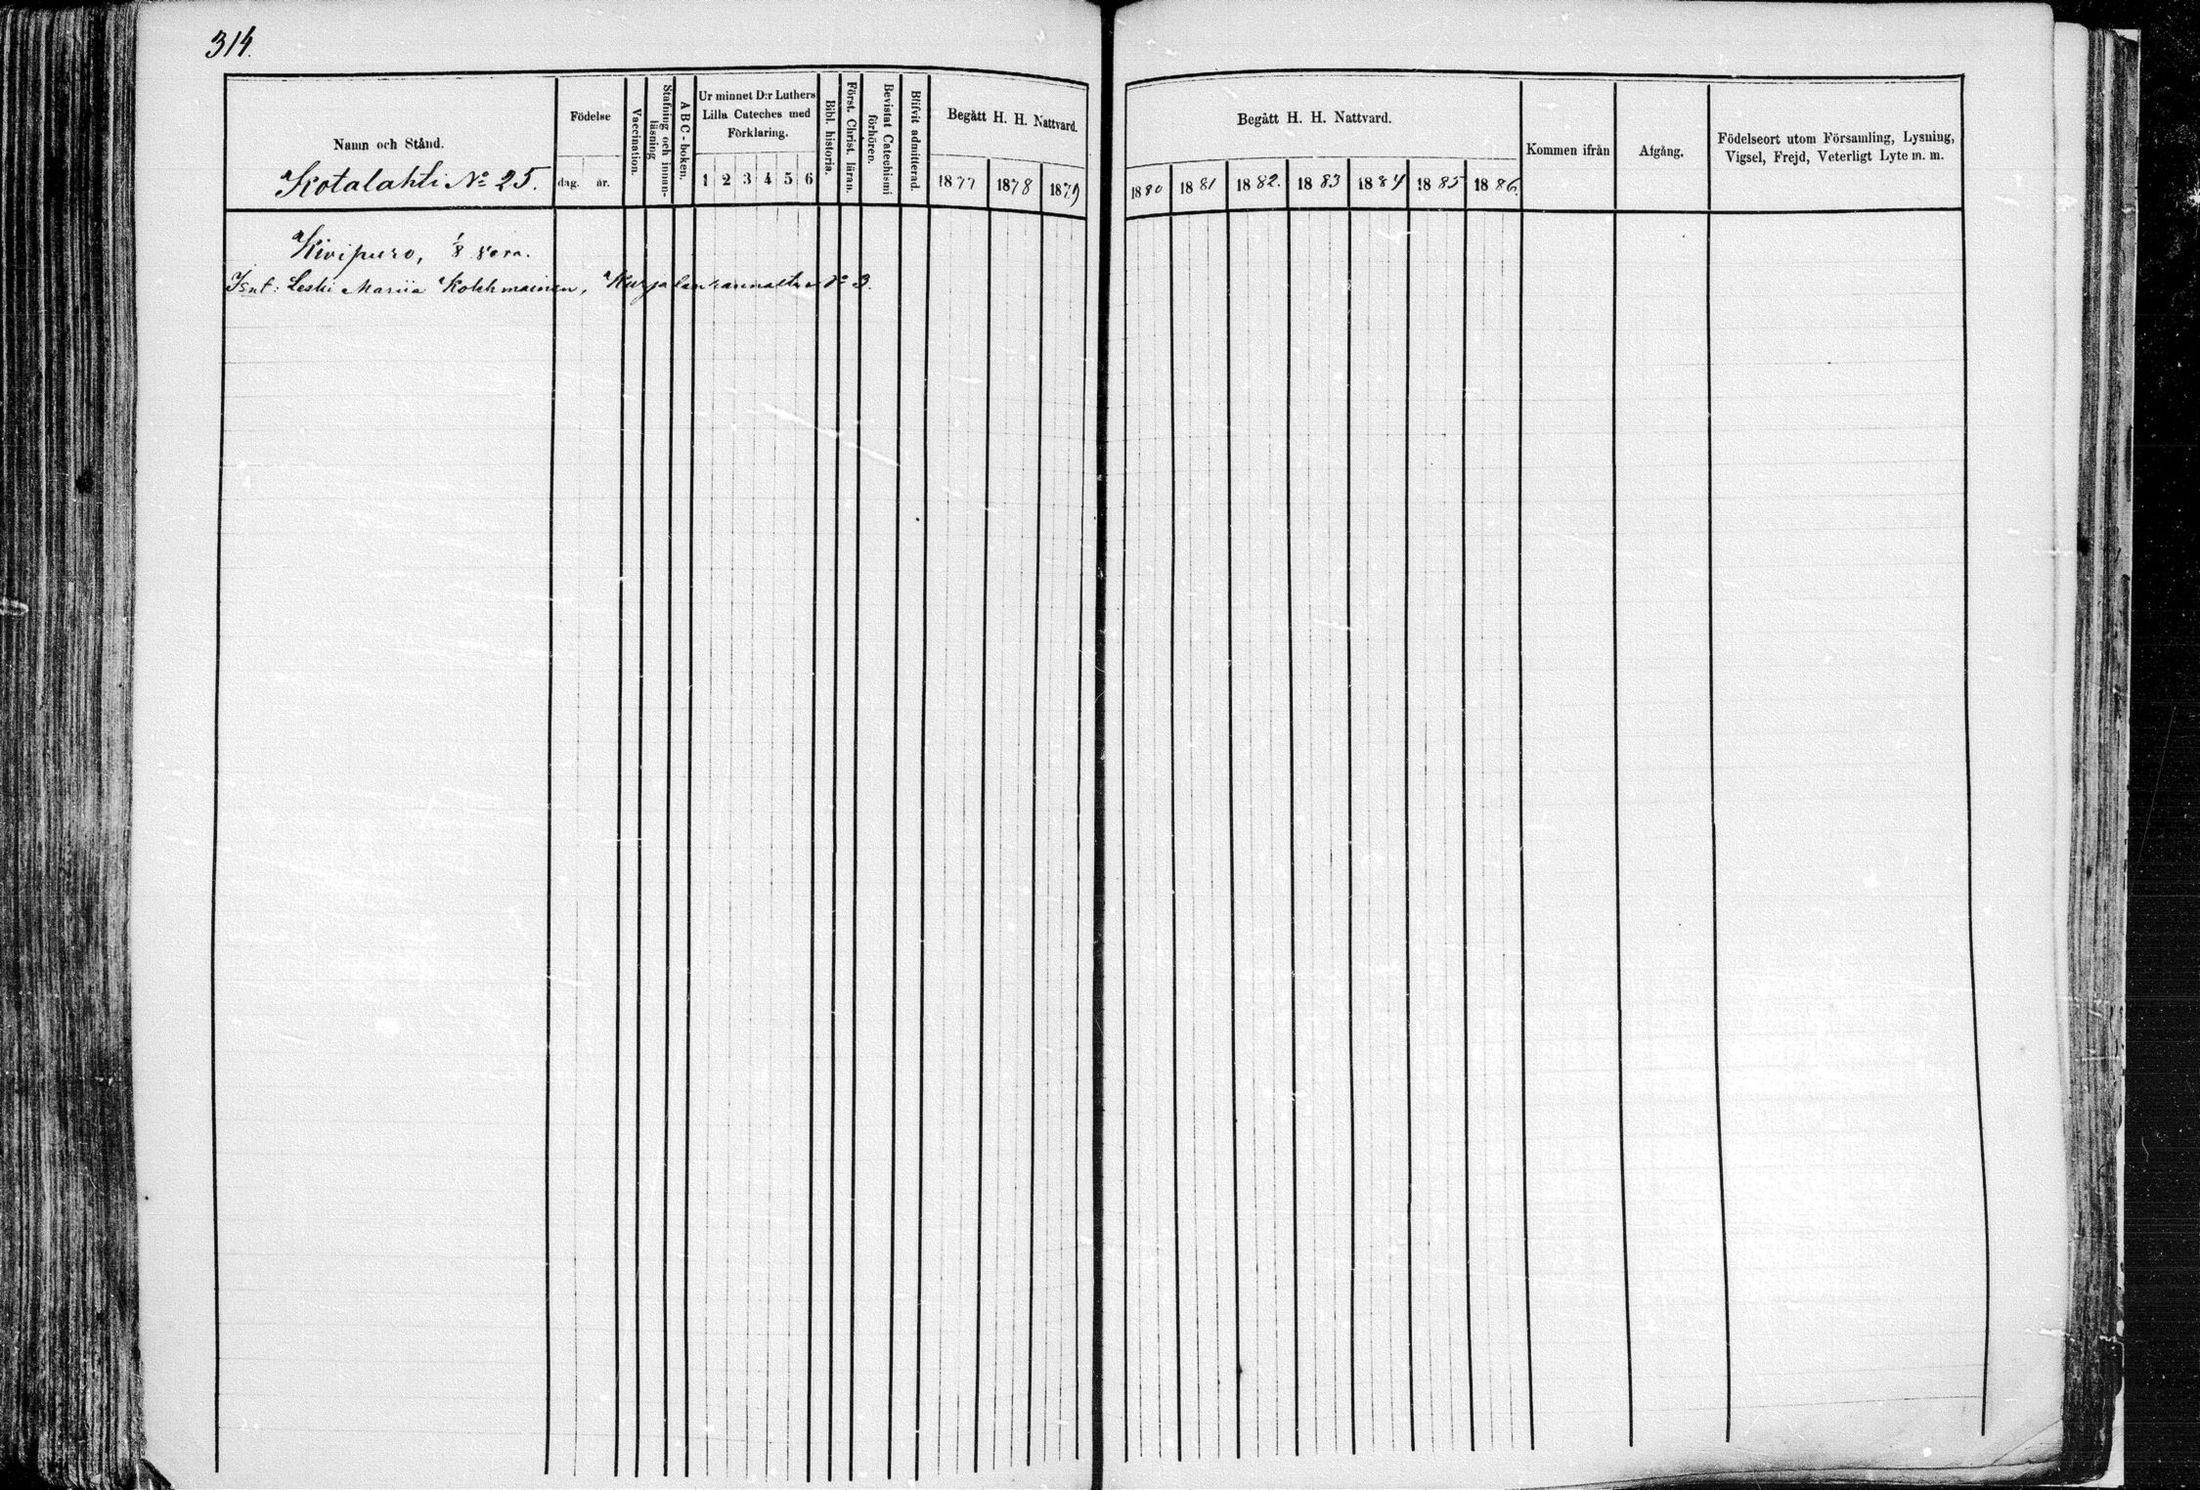 314.
Namn och Stånd.
Kotalahti No 25.
Födelse
dag. år.
Vaccination.
Stafning och innan-
läsning
ABC-boken.
Ur minnet D:r Luthers
Lilla Cateches med
Förklaring.
1 2 3 4 5 6
Bibl. historia.
Först. Christ. läran.
Bevistat Catechismi
förhören.
Blifvit admitterad.
Begått H. H. Nattvard.
1877 1878 1879
Begått H. H. Nattvard.
1880 1881 1882. 1883 1884 1885 1886.
Kommen ifrån
Afgång.
Födelseort utom Församling, Lysning,
Vigsel, Frejd, Veterligt Lyte m. m.
Kivipuro, 1/8
Isnt: Leski Mariia Kokkmainen, No 3.